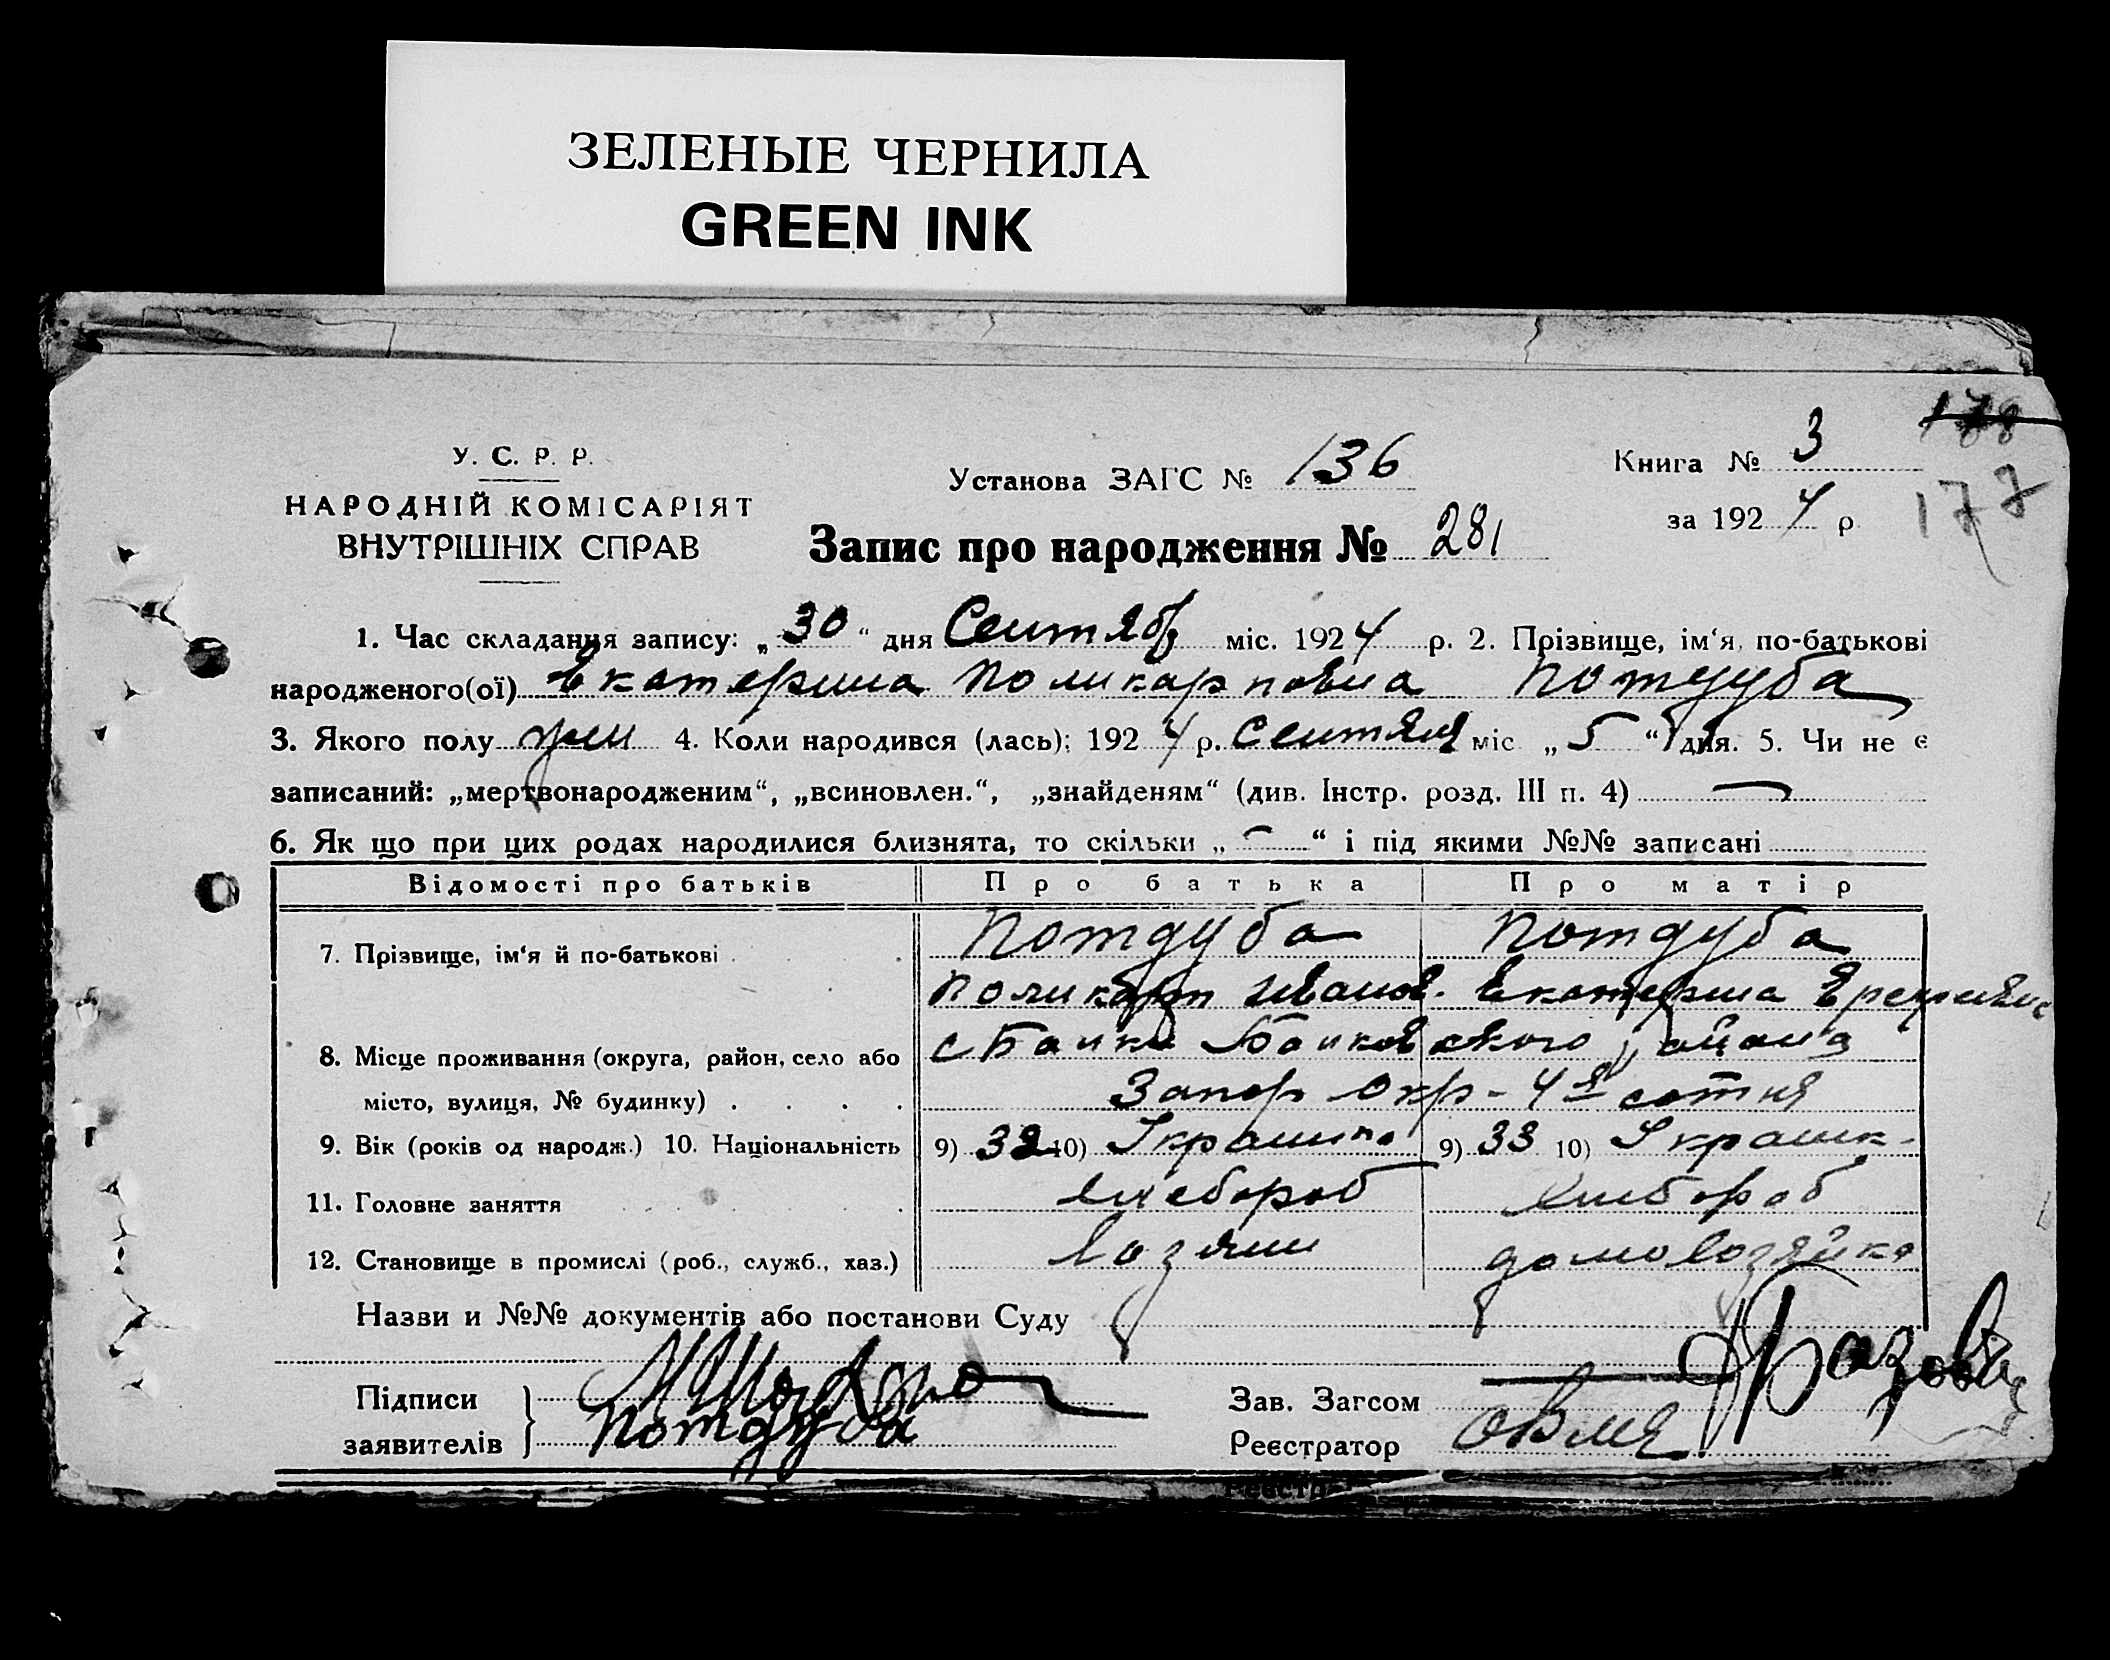 ЗЕЛЕНЫЕ ЧЕРНИЛА
GREEN INK
178
У. С. Р. Р.
НАРОДНІЙ КОМІСАРІЯТ
ВНУТРІШНІХ СПРАВ
Установа ЗАГС № 136
Книга № 3
за 1924 р
177
Запис про народження № 281
1. Час складання запису: „30“ дня Сентяб міс. 1924 р. 2. Прізвище, ім‘я, по-батькові
народженого(ої) Екатерина Поликарповна Потдуба
3. Якого полу жен 4. Коли народився (лась): 1924 р. Сентяб міс „5“ дня. 5. Чи не є
записаний: „мертвонародженим“, „всиновлен.“, „знайденям“ (див. Інстр. розд. III п. 4) —
6. Як що при цих родах народилися близнята, то скільки „—“ і під якими №№ записані
Відомості про батьків Про батька Про матір
7. Прізвище, ім‘я й по-батькові Потдуба Потдуба
Поликарп Иванов. Екатерина
8. Місце проживання (округа, район, село або с Балки Балковского района
місто, вулиця, № будинку) Запор Окр - 4я сотня
9. Вік (років од народж.) 10. Національність 9) 32 10) Украин 9) 33 10) Украинк-
11. Головне заняття хлебороб хлебороб
12. Становище в промислі (роб., служб., хаз.) хозяин домохозяйка
Назви и №№ документів або постанови Суду
Підписи
заявителів Потдуба
Зав. Загсом
Реєстратор